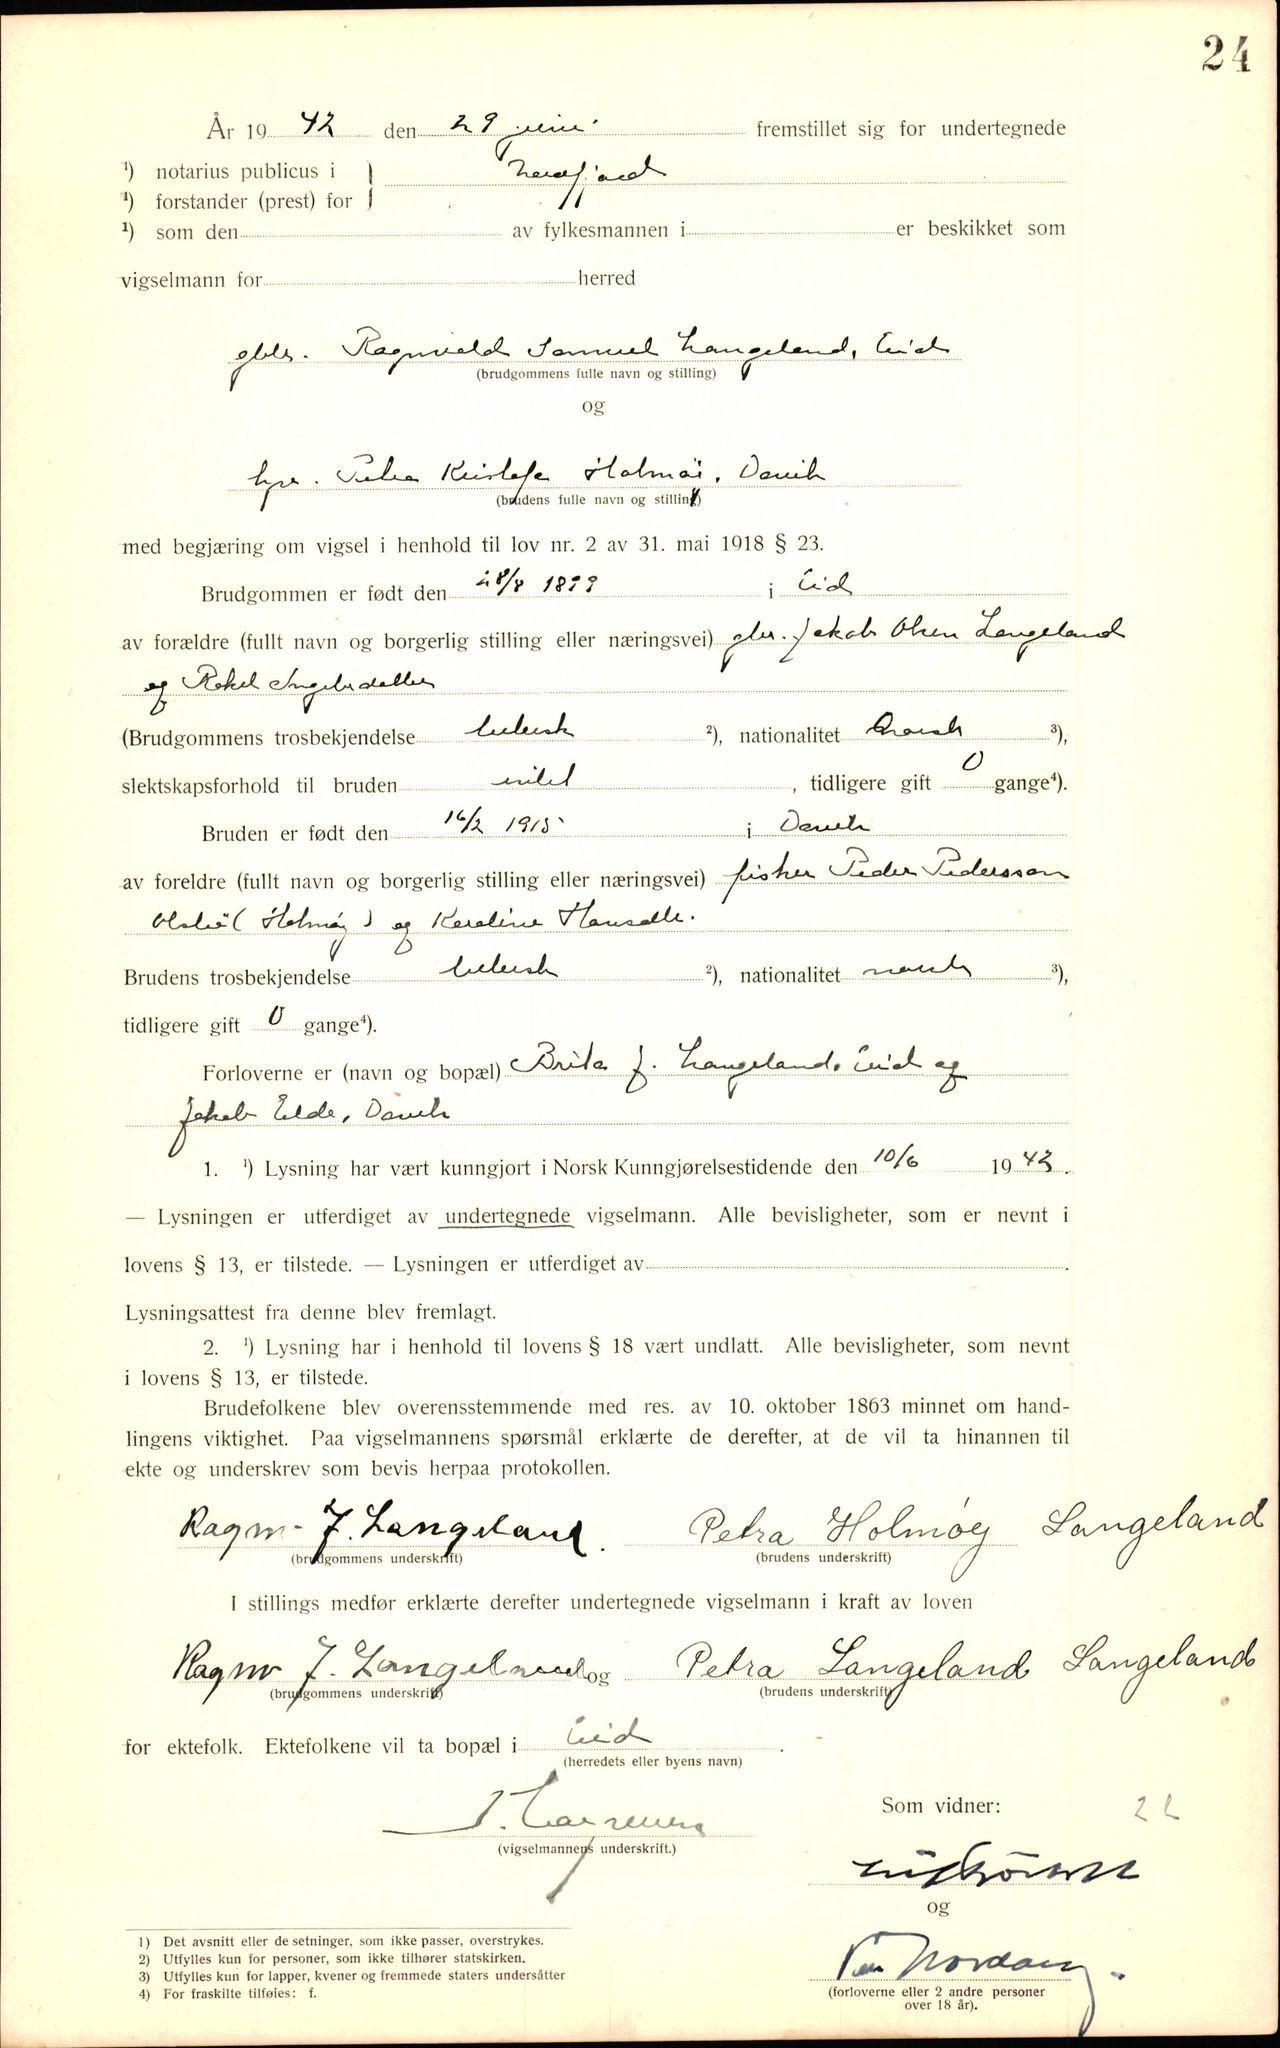 24
År 19 42 den 29 juni fremstillet sig for undertegnede
¹) notarius publicus i } Nordfjord
¹) forstander (prest) for }
¹) som den av fylkesmannen i er beskikket som
vigselmann for herred
gbr. Ragnvald Samuel Langeland, Eid
(brudgommens fulle navn og stilling)
og
Petra Kristofa Holmøi, Davik
(brudens fulle navn og stilling)
med begjæring om vigsel i henhold til lov nr. 2 av 31. mai 1918 § 23.
Brudgommen er født den 28/8 1899 i Eid
av forældre (fullt navn og borgerlig stilling eller næringsvei) gbr. Jakob Olsen Langeland
og Rakel Ingebr
(Brudgommens trosbekjendelse luthersk ²), nationalitet norsk ³),
slektskapsforhold til bruden intet, tidligere gift 0 gange⁴).
Bruden er født den 16/2 1915 i Davik
av foreldre (fullt navn og borgerlig stilling eller næringsvei) fisker Peder Pederssøn
(Holmøy) og Karoline Hansdtr.
Brudens trosbekjendelse luthersk ²), nationalitet norsk ³),
tidligere gift 0 gange⁴).
Forloverne er (navn og bopæl) Brita J. Langeland, Eid og
Jakob Elde, Davik
1. ¹) Lysning har vært kunngjort i Norsk Kunngjørelsestidende den 10/6 1942.
— Lysningen er utferdiget av undertegnede vigselmann. Alle bevisligheter, som er nevnt i
lovens § 13, er tilstede. — Lysningen er utferdiget av .
Lysningsattest fra denne blev fremlagt.
2. ¹) Lysning har i henhold til lovens § 18 vært undlatt. Alle bevisligheter, som nevnt
i lovens § 13, er tilstede.
Brudefolkene blev overensstemmende med res. av 10. oktober 1863 minnet om hand-
lingens viktighet. Paa vigselmannens spørsmål erklærte de derefter, at de vil ta hinannen til
ekte og underskrev som bevis herpaa protokollen.
Ragnv. J. Langeland. Petra Holmøy Langeland
(brudgommens underskrift) (brudens underskrift)
I stillings medfør erklærte derefter undertegnede vigselmann i kraft av loven
Ragnv J. Langeland og Petra Langeland Langeland
(brudgommens underskrift) (brudens underskrift)
for ektefolk. Ektefolkene vil ta bopæl i Eid .
(herredets eller byens navn)
Som vidner: 22
(vigselmannens underskrift.)
og
Nordang.
(forloverne eller 2 andre personer
over 18 år).
1) Det avsnitt eller de setninger, som ikke passer, overstrykes.
2) Utfylles kun for personer, som ikke tilhører statskirken.
3) Utfylles kun for lapper, kvener og fremmede staters undersåtter
4) For fraskilte tilføies: f.